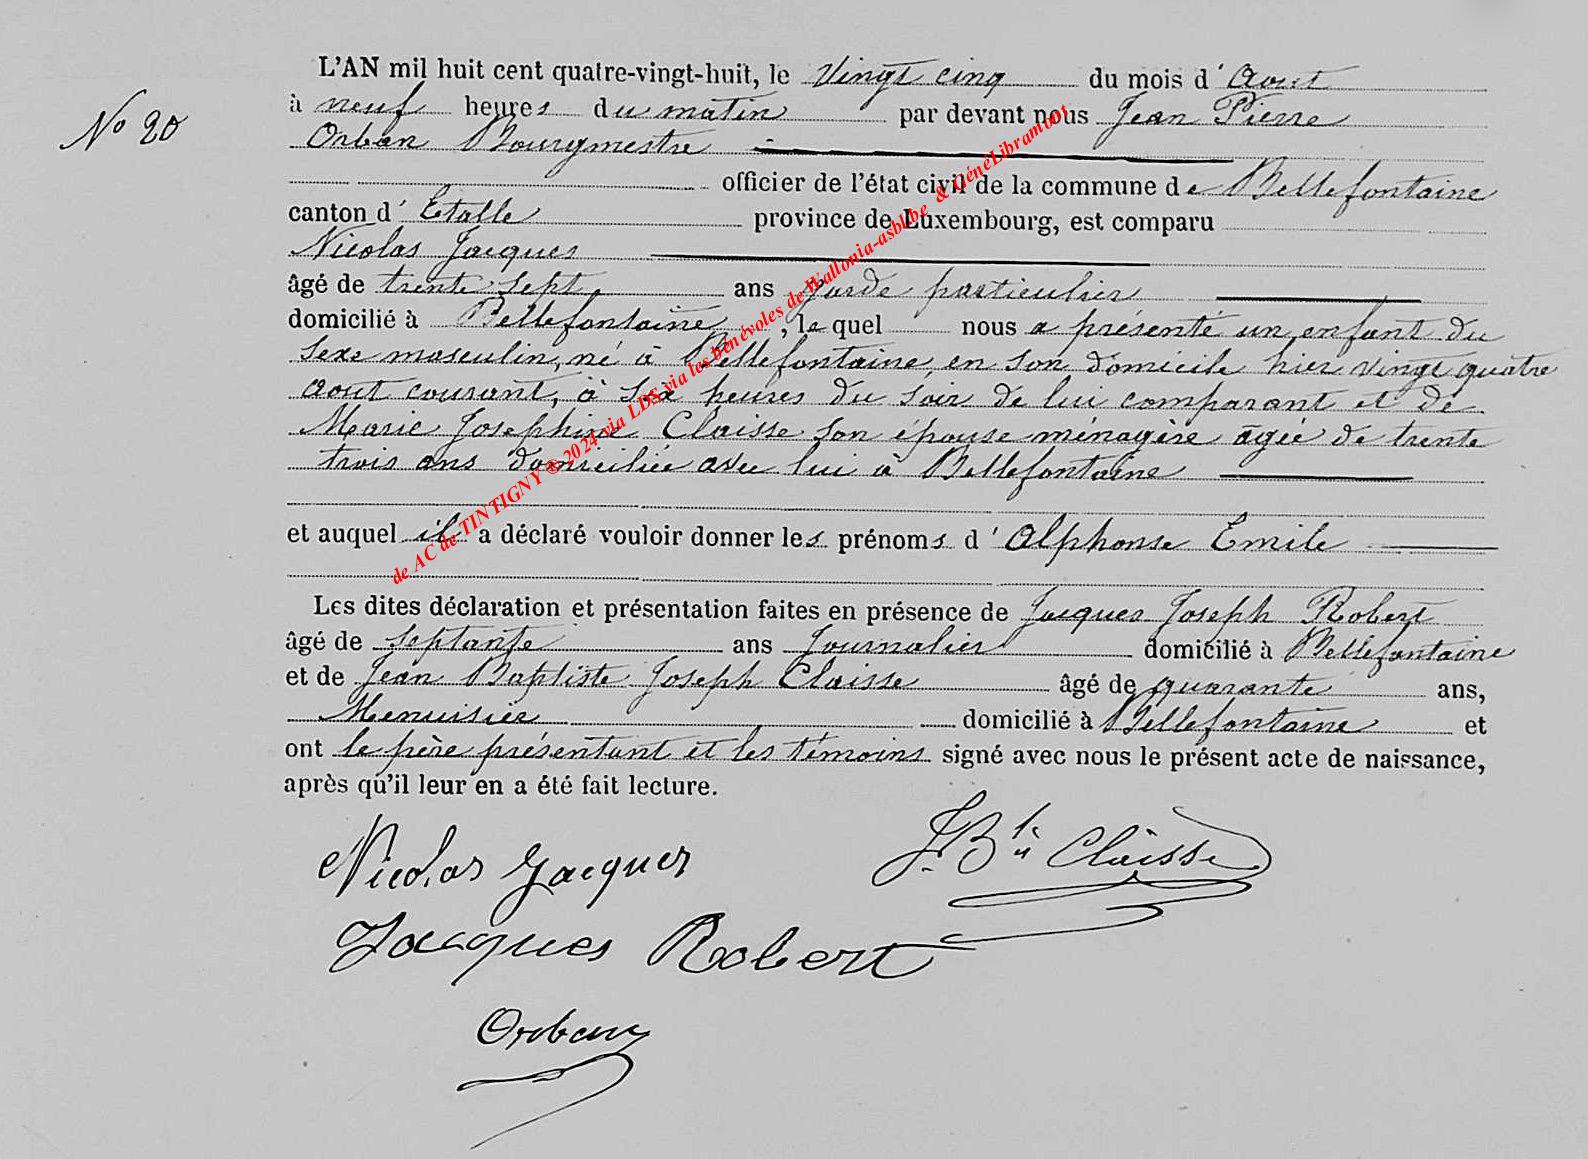 L'AN mil huit cent quatre-vingt-huit, le Vingt cinq du mois d'Aout
No 20
à neuf heures du matin par devant nous Jean Pierre
Orban Bourgmestre
officier de l'état civil de la commune de Bellefontaine
canton d'Etalle province de Luxembourg, est comparu
Nicolas Jacques
âgé de trente sept ans Garde particulier
domicilié à Bellefontaine, le quel nous a présenté un enfant du
sexe masculin, né à Bellefontaine, en son domicile hier vingt quatre
aout courant, à six heures du soir de lui comparant et de
Marie Josephine Claisse son épouse ménagère agée de trente
trois ans domiciliée avec lui à Bellefontaine
et auquel il a déclaré vouloir donner les prénoms d'Alphonse Emile
Les dites déclaration et présentation faites en présence de Jacques Joseph Robert
âgé de septante ans Journalier domicilié à Bellefontaine
et de Jean Baptiste Joseph Claisse âgé de quarante ans,
Menuisier domicilié à Bellefontaine et
ont le père présentant et les témoins signé avec nous le présent acte de naissance,
après qu'il leur en a été fait lecture.
Nicolas Jacques
J. Bte Claisse
Jacques Robert
Orban
de AC de TINTIGNY ® 2024 via LDS via les bénévoles de Wallonia-asbl.be & GéneLibramont